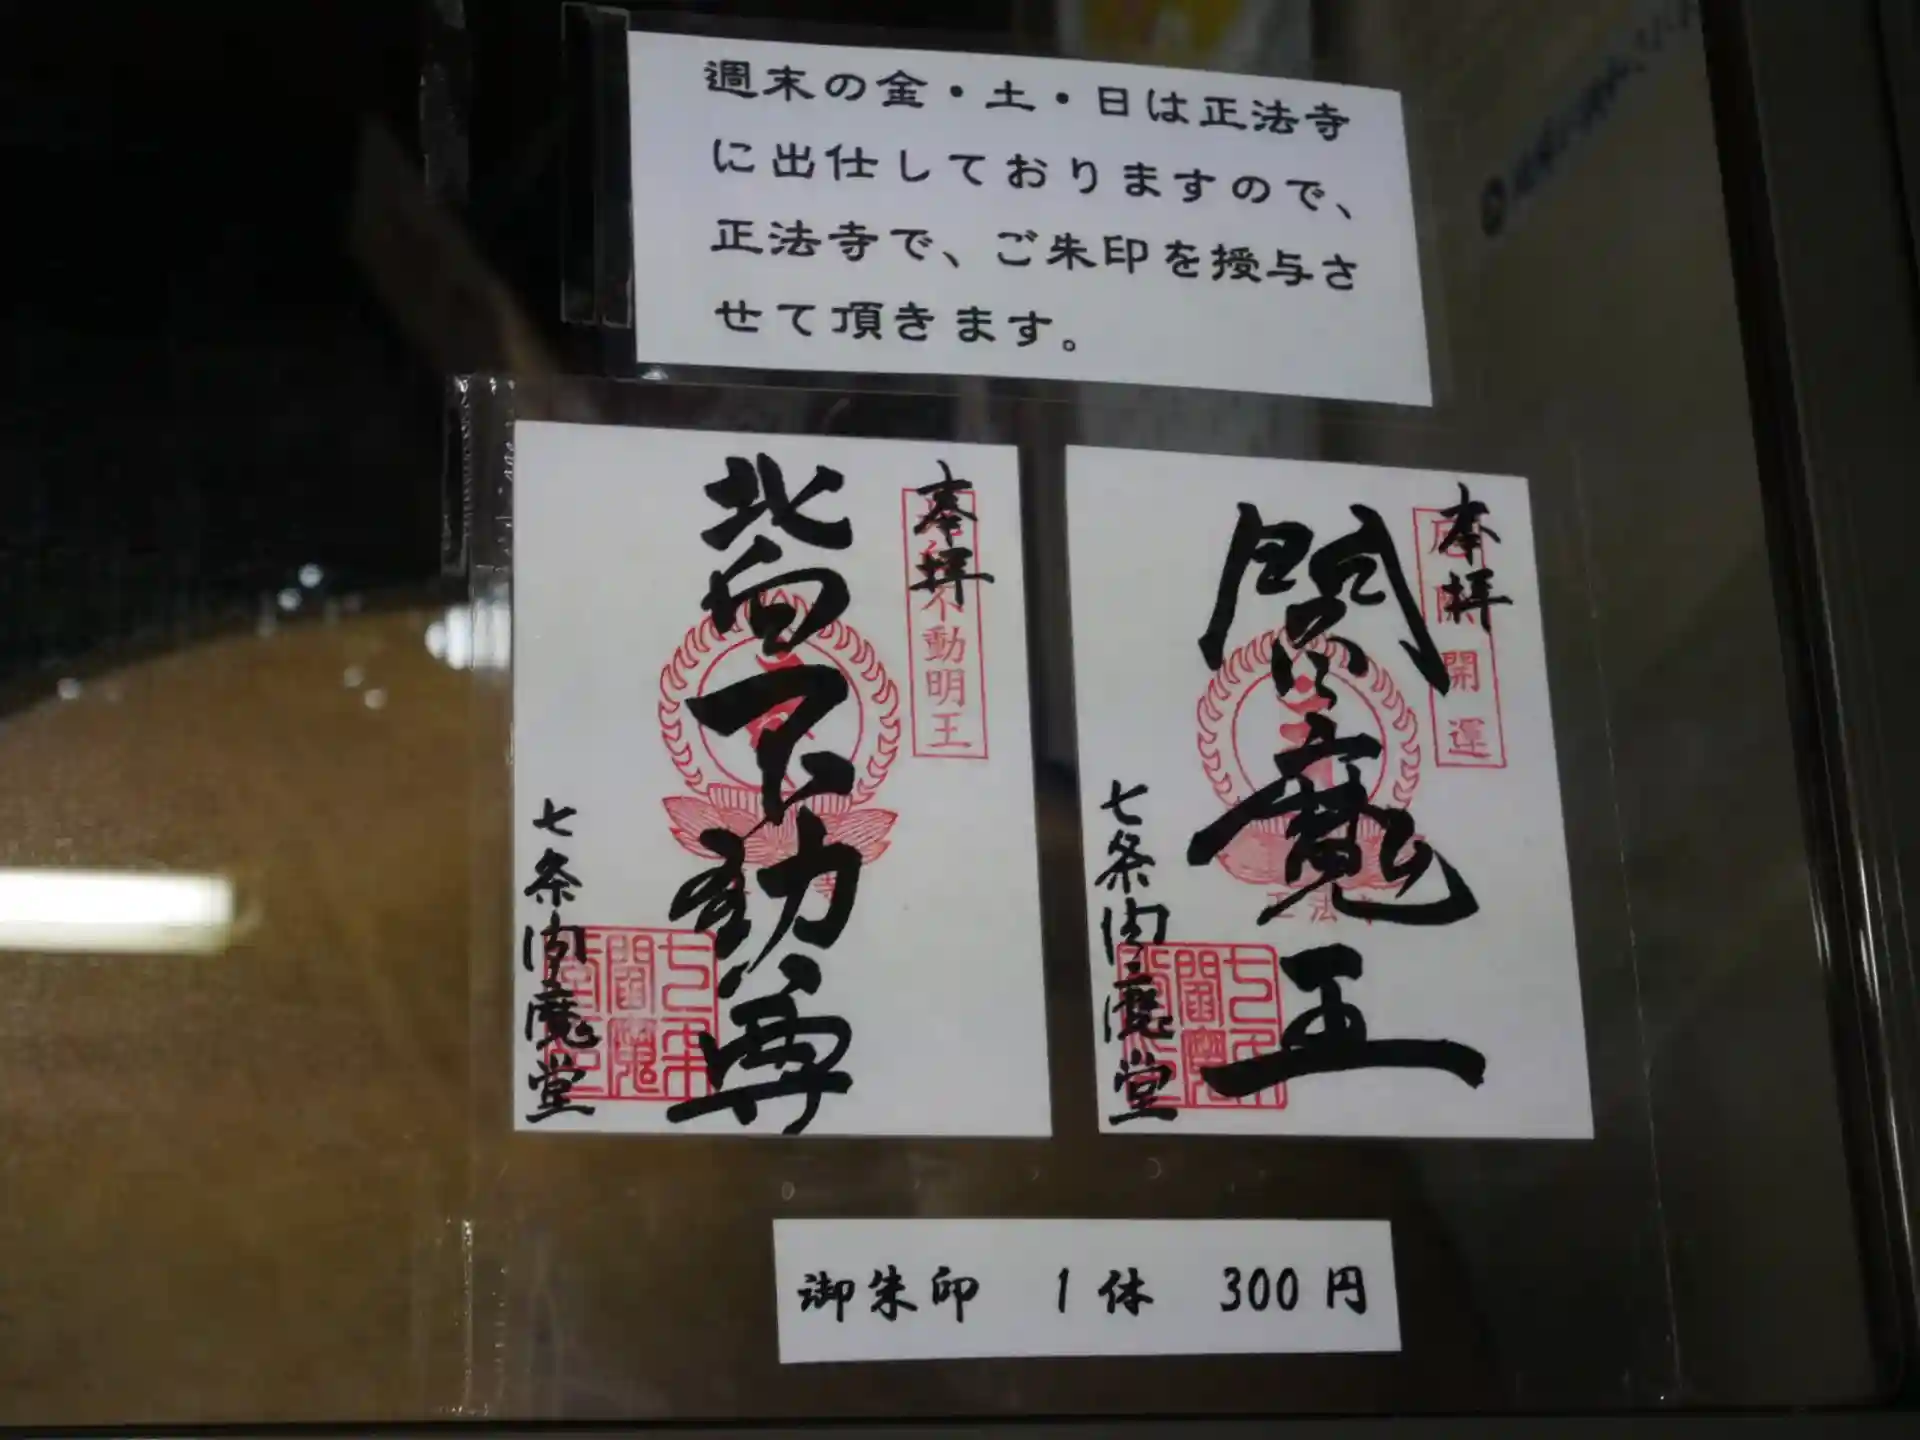 週末の金・土・日は正法寺
に出仕しておりますので、
正法寺で、ご朱印を授与さ
せて頂きます。
奉拝
不動明王
北向不動尊
七条閻魔堂
奉拝
厄除開運
閻魔王
正法寺
七条閻魔堂
御朱印 1体 300円